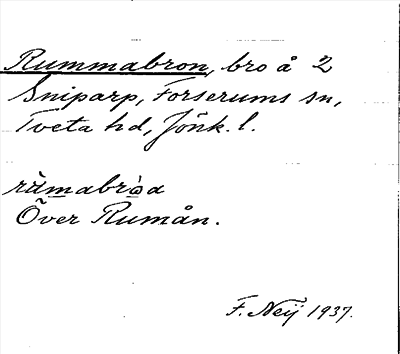 Rummabron, bro å 2
Sniparp, Forserums sn,
Tveta hd, Jönk. l.
ràmabròa
Över Rumån.
F. Neij 1937.